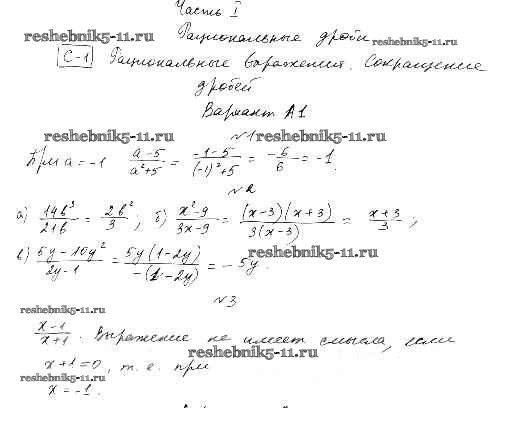 Часть I
reshebnik5-11.ru Рациональные дроби reshebnik5-11.ru
С-1 Рациональные выражения. Сокращение
дробей
Вариант А1
reshebnik5-11.ru №1 reshebnik5-11.ru
При a = -1 (a-5)/(a²+5) = (-1-5)/((-1)²+5) = -6/6 = -1.
№2
а) 14b³/21b = 2b²/3; б) (x²-9)/(3x-9) = (x-3)(x+3)/3(x-3) = (x+3)/3;
в) (5y-10y²)/(2y-1) = 5y(1-2y)/-(1-2y) = -5y. reshebnik5-11.ru
№3
reshebnik5-11.ru
(x-1)/(x+1). Выражение не имеет смысла, если
reshebnik5-11.ru
x+1=0, т.е. при
reshebnik5-11.ru
x = -1.